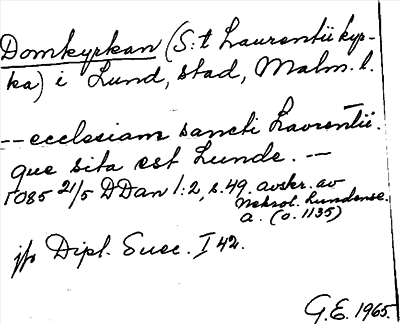 Domkyrkan (S:t Laurentii kyr-
ka) i Lund, stad, Malm. l.
-- ecclesiam sancti Lavrentii.
que sita est Lunde. --
1085 21/5 DDan 1:2, s. 49. avskr. av
Nekrol. Lundense.
a. (o. 1135)
jfr Dipl. Suec. I 42.
G.E. 1965.